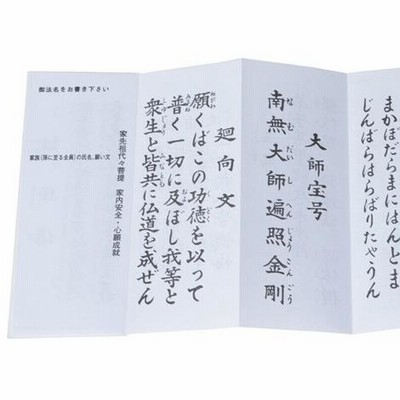 まかぼだらまにはんどま
じんばらはらばりたやうん
大師宝号
なむだいしへんじょうこんごう
南無大師遍照金剛
廻向文
願くばこの功徳を以って
普く一切に及ぼし我等と
衆生と皆共に仏道を成ぜん
家先祖代々菩提 家内安全・心願成就
御法名をお書き下さい
家族(孫に至る全員)の氏名、願い文